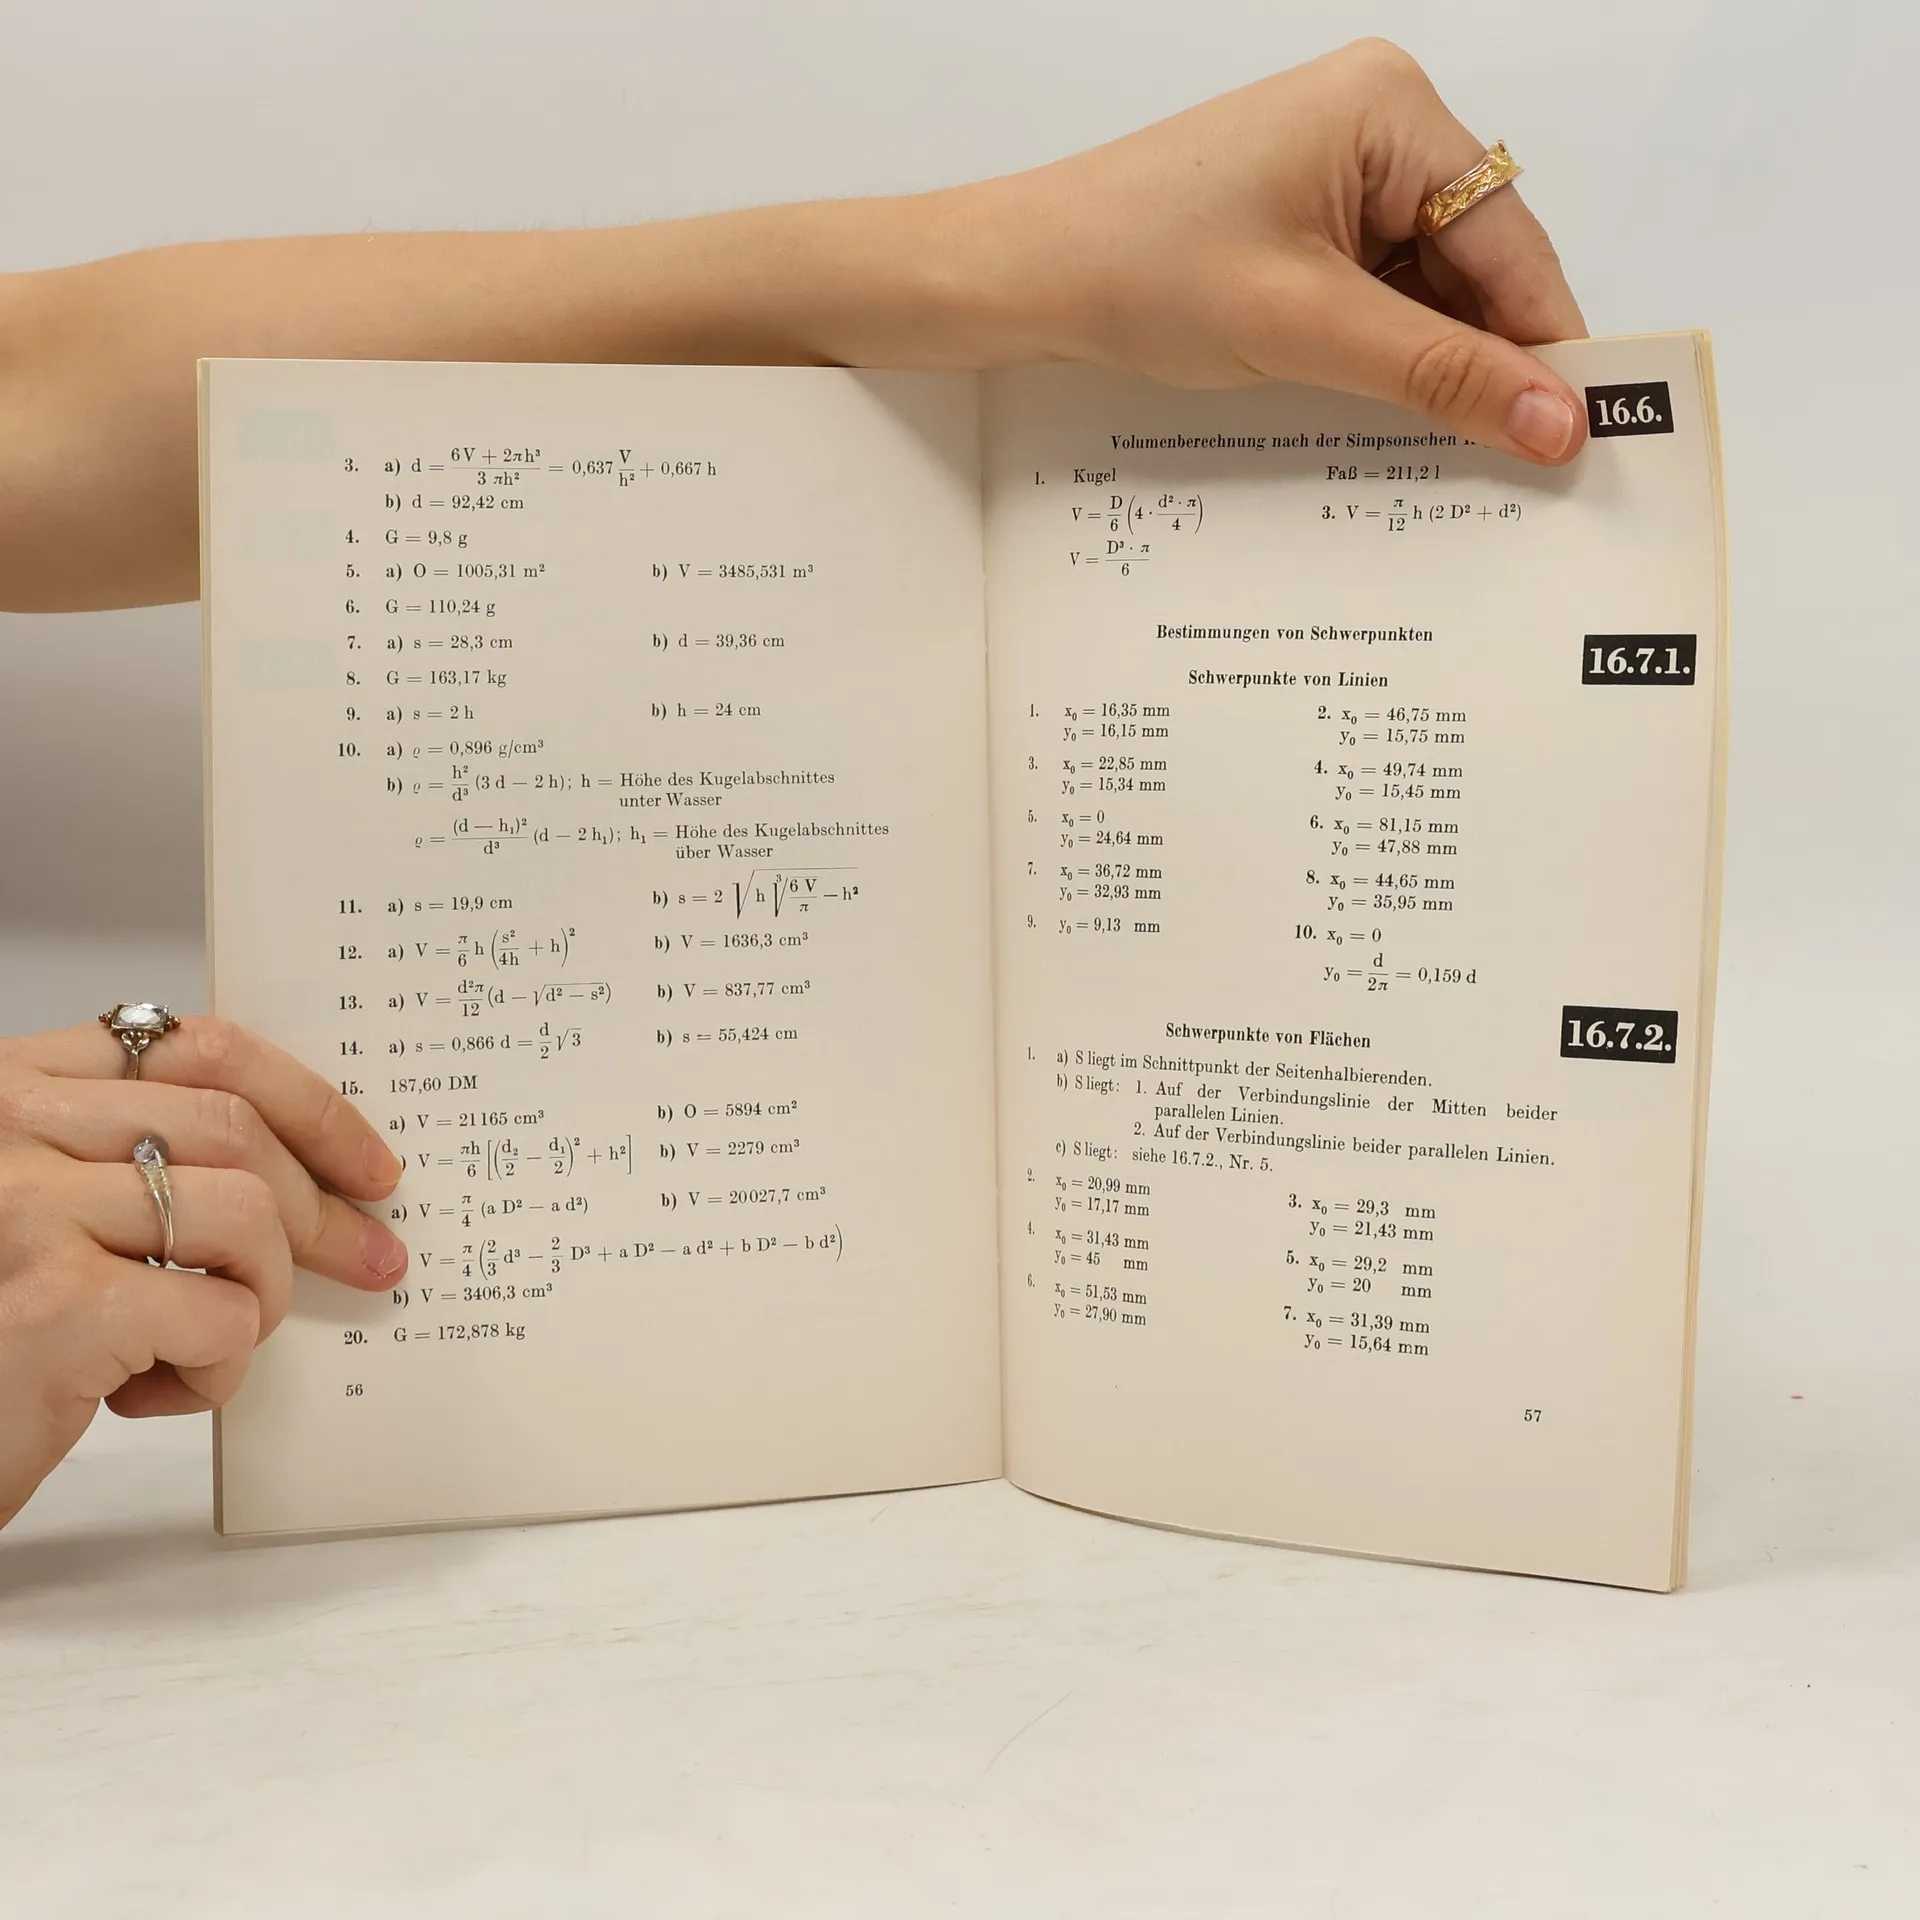 3. a) d = (6V + 2πh³)/(3 πh²) = 0,637 V/h² + 0,667 h
b) d = 92,42 cm
4. G = 9,8 g
5. a) O = 1005,31 m² b) V = 3485,531 m³
6. G = 110,24 g
7. a) s = 28,3 cm b) d = 39,36 cm
8. G = 163,17 kg
9. a) s = 2 h b) h = 24 cm
10. a) ϱ = 0,896 g/cm³
b) ϱ = h²/d³ (3 d − 2 h); h = Höhe des Kugelabschnittes
unter Wasser
ϱ = (d − h₁)²/d³ (d − 2 h₁); h₁ = Höhe des Kugelabschnittes
über Wasser
11. a) s = 19,9 cm b) s = 2 √(h ∛(6 V/π) − h²)
12. a) V = π/6 h (s²/4h + h)² b) V = 1636,3 cm³
13. a) V = d²π/12 (d − √(d² − s²)) b) V = 837,77 cm³
14. a) s = 0,866 d = d/2 √3 b) s = 55,424 cm
15. 187,60 DM
a) V = 21165 cm³ b) O = 5894 cm²
) V = πh/6 [(d₂/2 − d₁/2)² + h²] b) V = 2279 cm³
a) V = π/4 (a D² − a d²) b) V = 20027,7 cm³
V = π/4 (2/3 d³ − 2/3 D³ + a D² − a d² + b D² − b d²)
b) V = 3406,3 cm³
20. G = 172,878 kg
56
16.6.
Volumenberechnung nach der Simpsonschen
1. Kugel Faß = 211,2 l
V = D/6 (4 · d² · π/4) 3. V = π/12 h (2 D² + d²)
V = D³ · π/6
Bestimmungen von Schwerpunkten
16.7.1.
Schwerpunkte von Linien
1. x₀ = 16,35 mm 2. x₀ = 46,75 mm
y₀ = 16,15 mm y₀ = 15,75 mm
3. x₀ = 22,85 mm 4. x₀ = 49,74 mm
y₀ = 15,34 mm y₀ = 15,45 mm
5. x₀ = 0 6. x₀ = 81,15 mm
y₀ = 24,64 mm y₀ = 47,88 mm
7. x₀ = 36,72 mm 8. x₀ = 44,65 mm
y₀ = 32,93 mm y₀ = 35,95 mm
9. y₀ = 9,13 mm 10. x₀ = 0
y₀ = d/2π = 0,159 d
16.7.2.
Schwerpunkte von Flächen
1. a) S liegt im Schnittpunkt der Seitenhalbierenden.
b) S liegt: 1. Auf der Verbindungslinie der Mitten beider
parallelen Linien.
2. Auf der Verbindungslinie beider parallelen Linien.
c) S liegt: siehe 16.7.2., Nr. 5.
2. x₀ = 20,99 mm 3. x₀ = 29,3 mm
y₀ = 17,17 mm y₀ = 21,43 mm
4. x₀ = 31,43 mm 5. x₀ = 29,2 mm
y₀ = 45 mm y₀ = 20 mm
6. x₀ = 51,53 mm 7. x₀ = 31,39 mm
y₀ = 27,90 mm y₀ = 15,64 mm
57